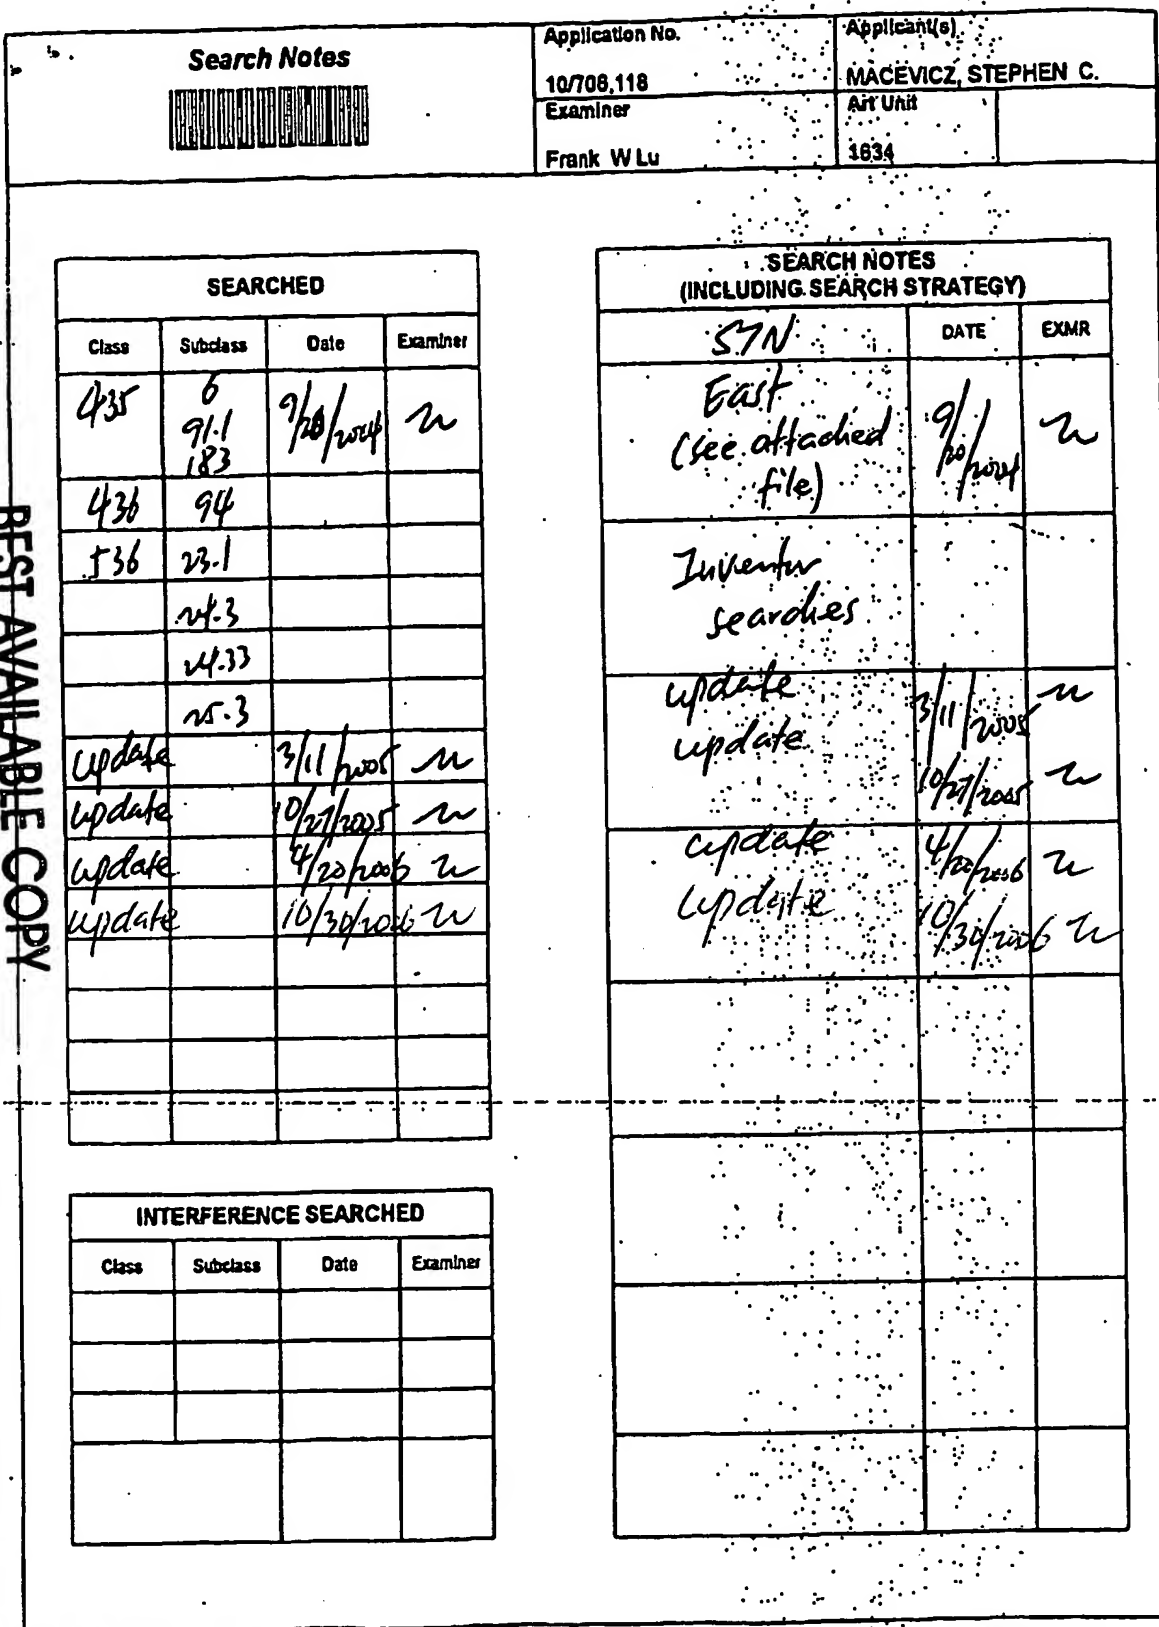 Search Notes
Application No.
10/706,118
Applicant(s)
MACEVICZ, STEPHEN C.
Examiner
Frank W Lu
Art Unit
1634
SEARCHED
Class Subclass Date Examiner
435 6
91.1
183
9/20/2004
436 94
536 23.1
24.3
24.33
25.3
update 3/11/2005
update 10/27/2005
update 4/20/2006
update 10/30/2006
INTERFERENCE SEARCHED
Class Subclass Date Examiner
SEARCH NOTES
(INCLUDING SEARCH STRATEGY)
STN DATE EXMR
East
(see attached
file)
9/20/2004
Inventor
searches
update 3/11/2005
update 10/27/2005
update 4/20/2006
update 10/30/2006
BEST AVAILABLE COPY